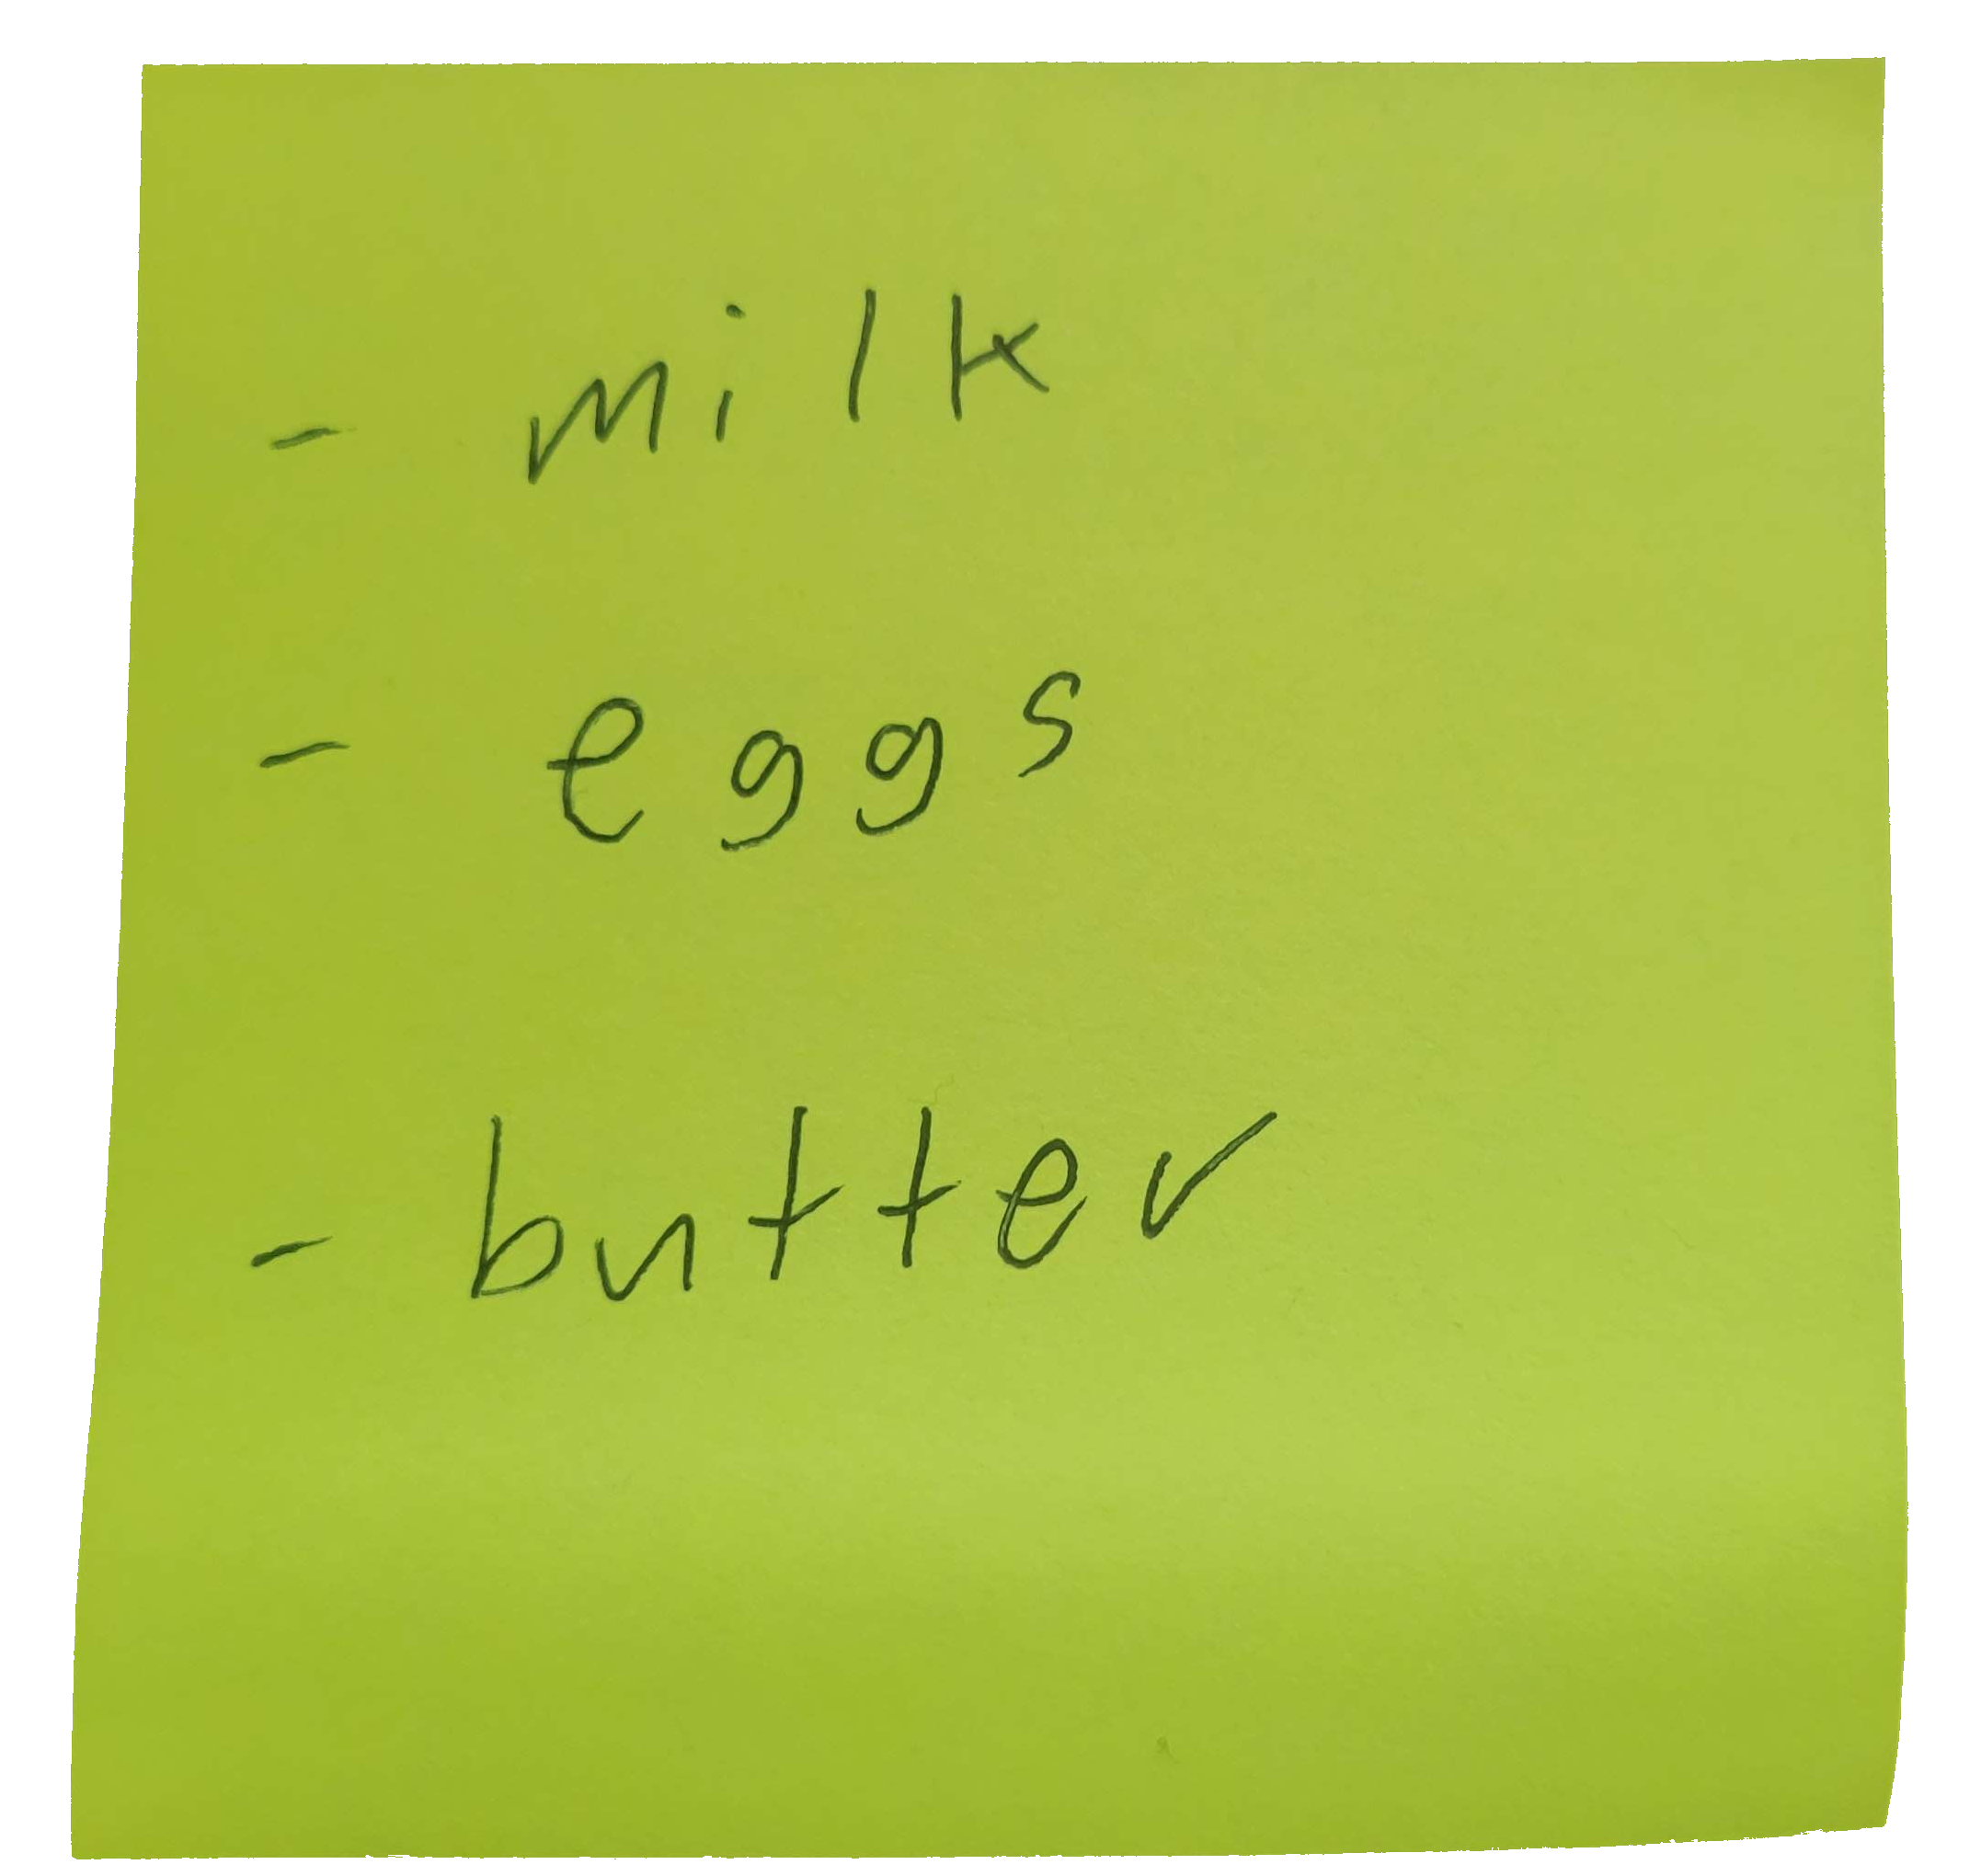 - milk
- eggs
- butter